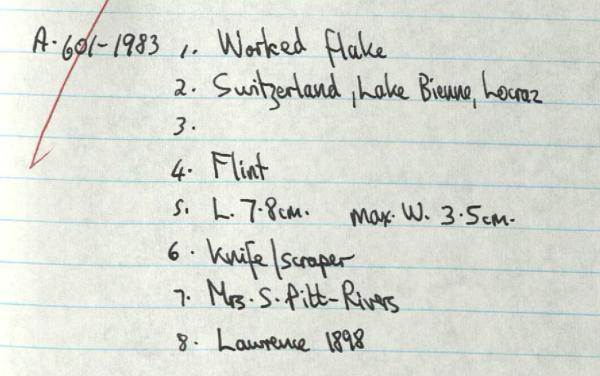 A.601-1983 1. Worked flake
2. Switzerland, Lake Bienne, Locraz
3.
4. Flint
5. L. 7.8cm. max. W. 3.5cm.
6. Knife/scraper
7. Mrs. S. Pitt-Rivers
8. Lawrence 1898